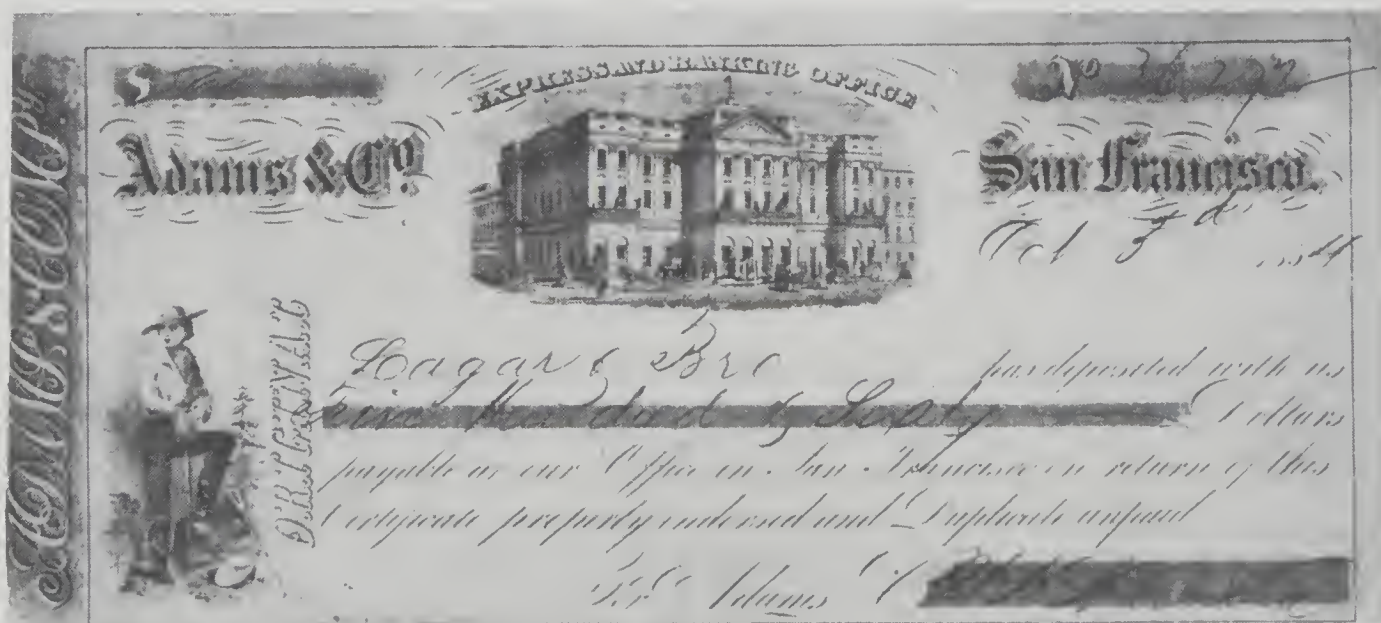 $
EXPRESS AND BANKING OFFICE
No
Adams & Co.
San Francisco.
Oct 3d 1854
ADAMS & COMPY.
ORIGINAL
& Bro has deposited with us
Hundred & Sixty Dollars
payable at our Office in San Francisco on return of this
Certificate properly endorsed and Duplicate unpaid
For Adams & Co